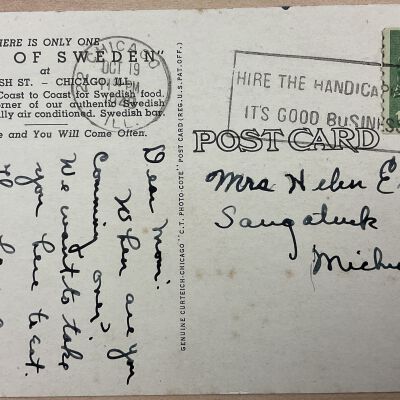 HERE IS ONLY ONE
OF SWEDEN"
at
SH ST. – CHICAGO, ILL.
Coast to Coast for Swedish food.
orner of our authentic Swedish
lly air conditioned. Swedish bar.
e and You Will Come Often.
CHICAGO
OCT 19
PM
ILL.
HIRE THE HANDICAP
IT'S GOOD BUSINESS
POST CARD
GENUINE CURTEICH-CHICAGO "C.T. PHOTO-COTE" POST CARD (REG. U.S. PAT. OFF.)
Dear Mom:
When are you
comming over?
We want to take
you here to eat.
Mrs Helen E.
Saugatuck
Michi